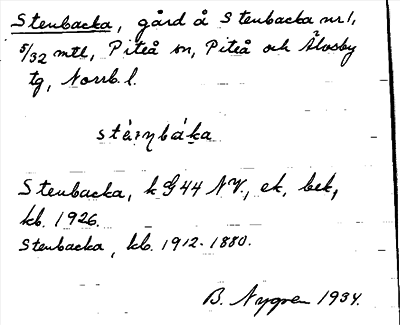 Stenbacka, gård å Stenbacka nr 1,
5/32 mtl, Piteå sn, Piteå och Älvsby
tg, Norrb. l.
Stenbacka, k G 44 NV., ek, bek,
kb. 1926.
Stenbacka, kb. 1912-1880.
B. Nygren 1934.